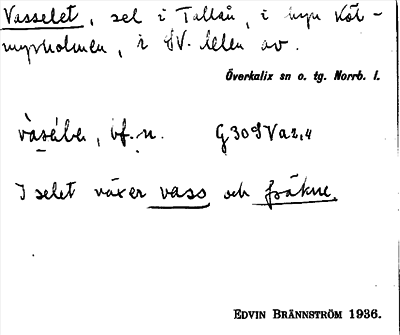 Vasselet, sel i Tallån, i myn Köt-
myrholmen, i SV. delen av.
Överkalix sn o. tg. Norrb. l.
bf. n. G30SVa2,4
I selet växer vass och fräkne.
EDVIN BRÄNNSTRÖM 1936.